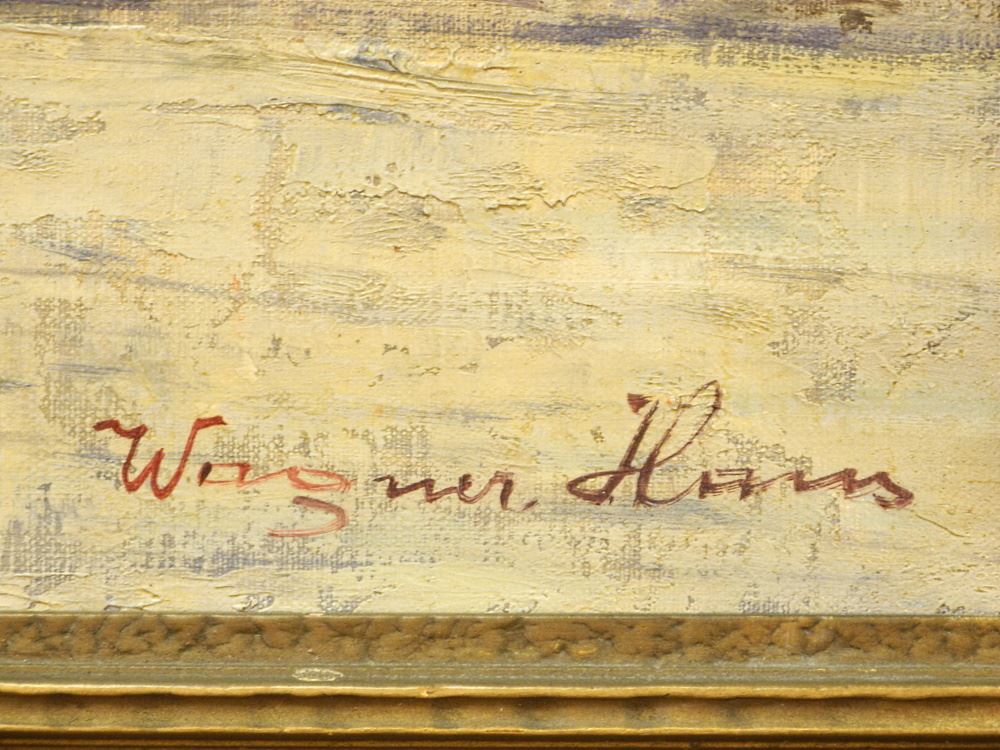 Wagner. Hans